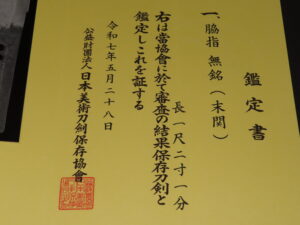 鑑定書
一、脇指 無銘（末関）
長一尺二寸一分
右は當協會に於て審査の結果保存刀剣と
鑑定しこれを証する
令和七年五月二十八日
公益財団法人日本美術刀剣保存協會